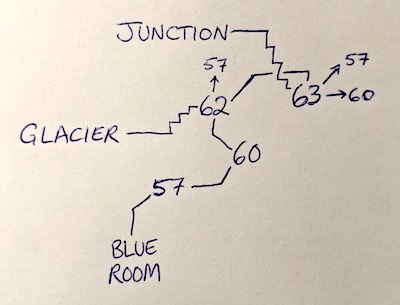 JUNCTION
57
57
62
63
60
GLACIER
60
57
BLUE
ROOM